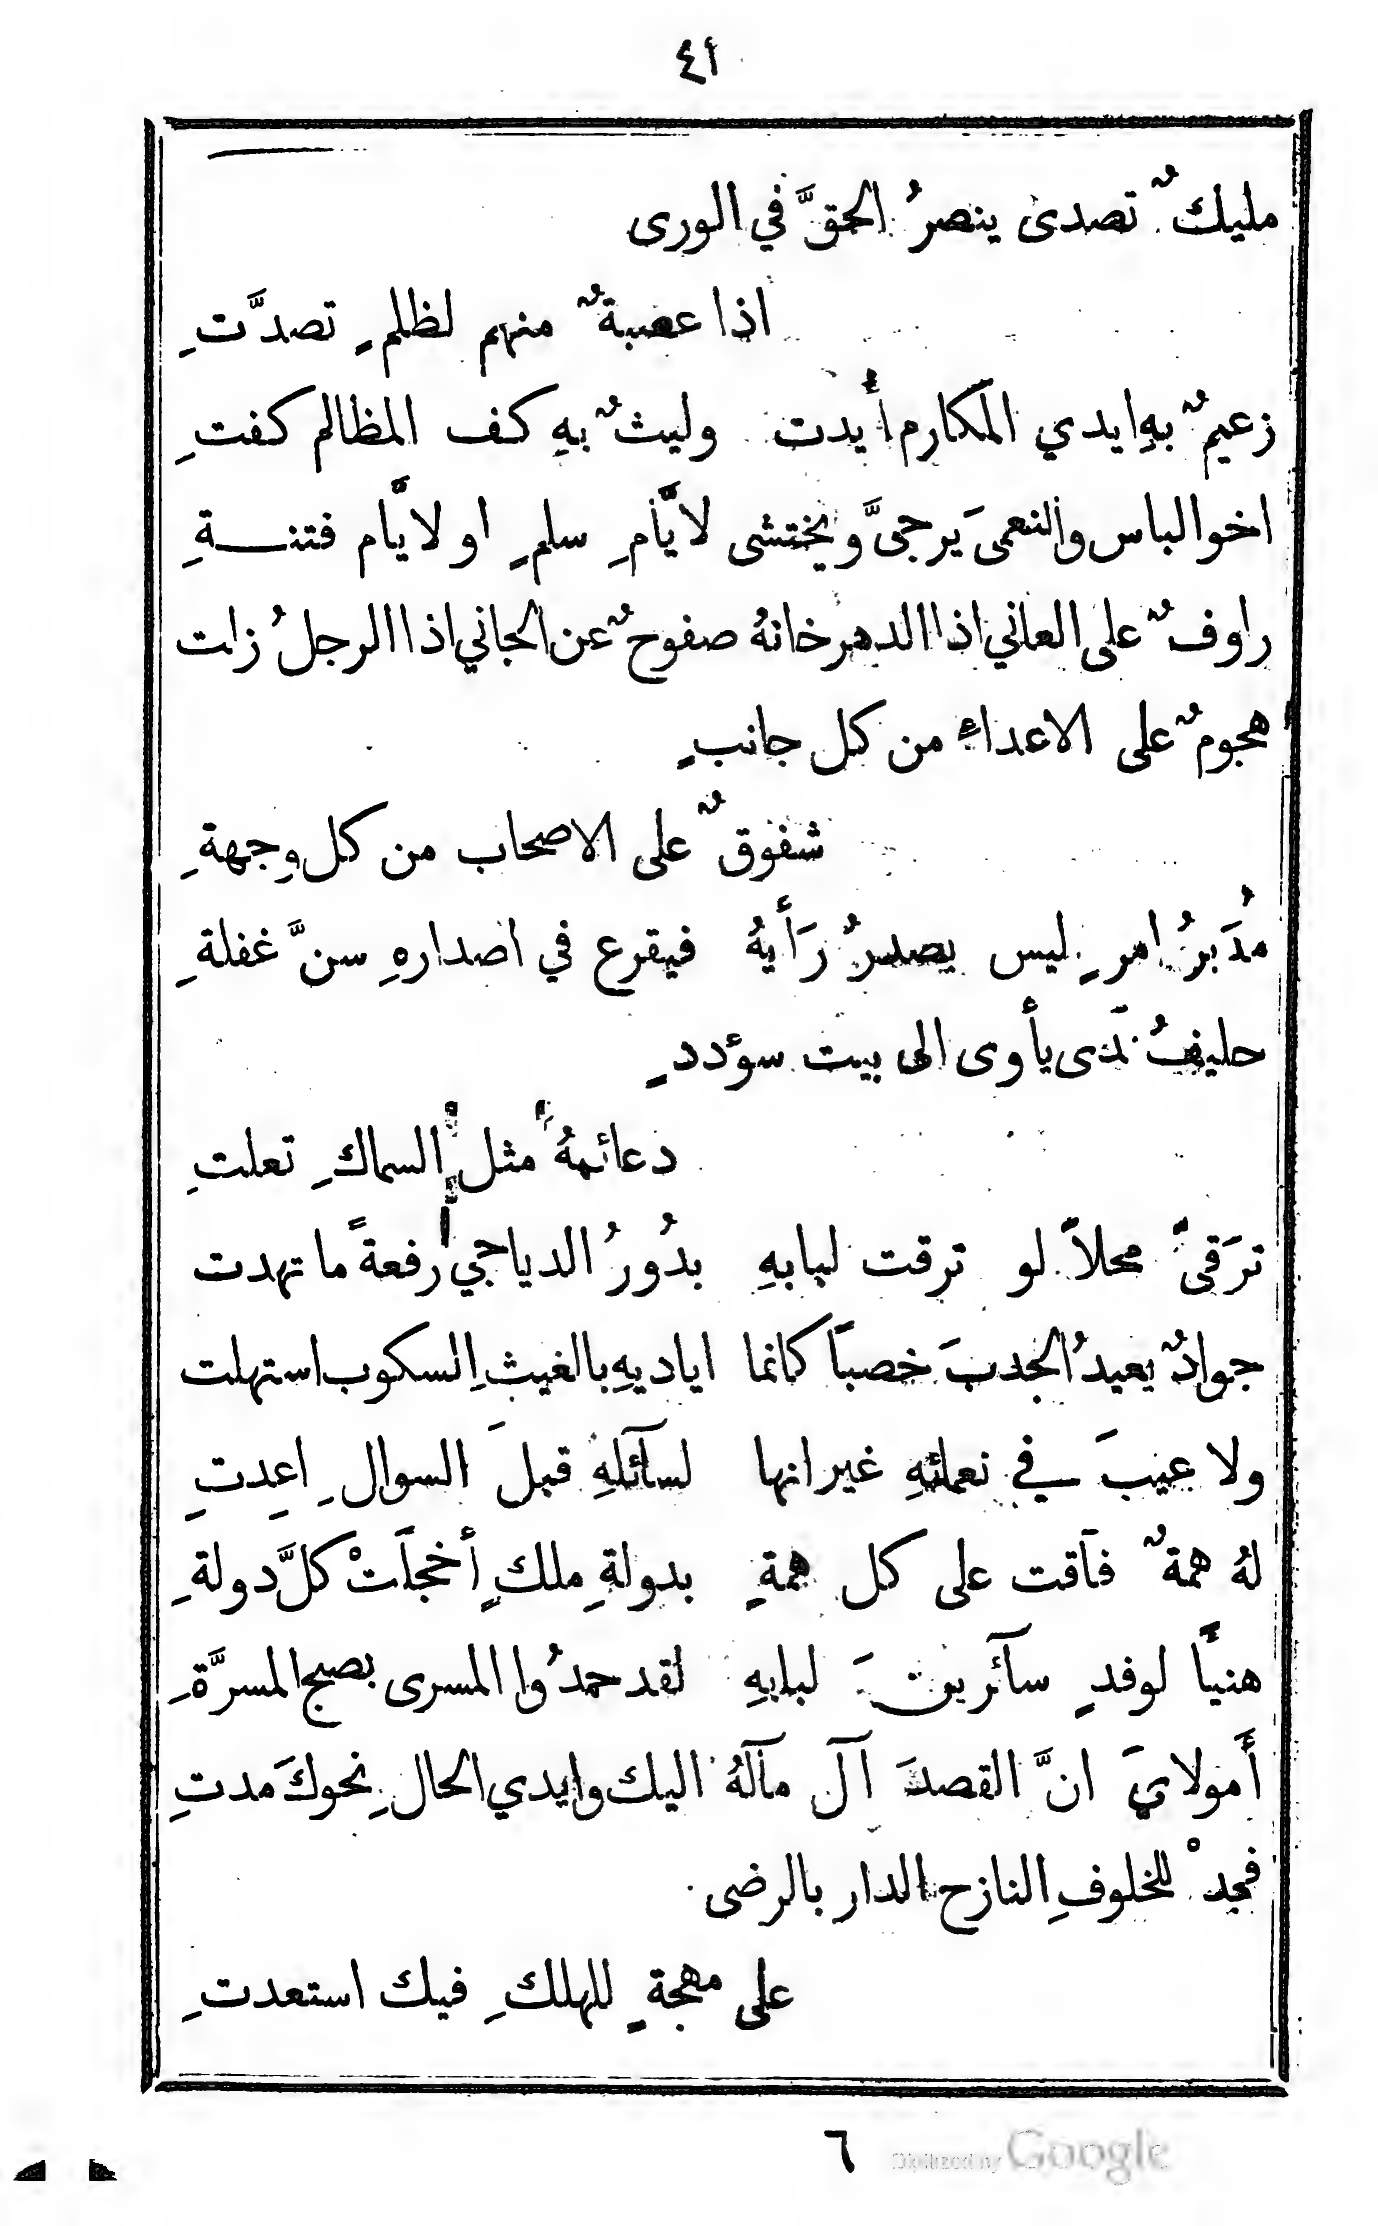 ٤١
مليكٌ تصدى ينصرُ الحقَّ في الورى
اذا عصبةٌ منهم لظلمٍ تصدَّتِ
زعيمٌ بهِ ايدي المكارم أُيدت وليثٌ بهِ كف المظالم كفتِ
اخو الباس والنعمى يَرجىَّ ويختشى لايَّامِ سلمٍ او لايَّام فتنـــةِ
راوفٌ على العاني اذا الدهر خانهُ صفوحٌ عن الجاني اذا الرجلُ زلت
هجومٌ على الاعداءِ من كل جانبٍ
شفوقٌ على الاصحاب من كل وِجهةِ
مُدَبرُ امرٍ ليس يصدرُ رَأيهُ فيقرع في اصدارهِ سنَّ غفلةِ
حليفُ نَدى يأوى الى بيت سوءددٍ
دعائمهُ مثل السماكِ تعلتِ
ترَقىَّ محلاً لو ترقت لبابهِ بدُورُ الدياجي رفعةً ما تهدت
جوادٌ يعيدُ الجدبَ خصباً كانما اياديهِ بالغيثِ السكوب استهلت
ولا عيبَ في نعمائهِ غير انها لسآئلهِ قبلَ السوالِ اعِدتِ
لهُ همةٌ فاقت على كل همةٍ بدولةِ ملكٍ أخجلَتْ كلَّ دولةِ
هنيًا لوفدٍ سآئرينَ لبابهِ لقد حمدُوا المسرى بصبح المسرَّةِ
أَمولايَ انَّ القصدَ آل مآلهُ اليك وايدي الحالِ نحوكَ مدتِ
فجدْ للخلوفِ النازح الدار بالرضى
على مهجةٍ للهلكِ فيك استعدتِ
٦
Digitized by Google